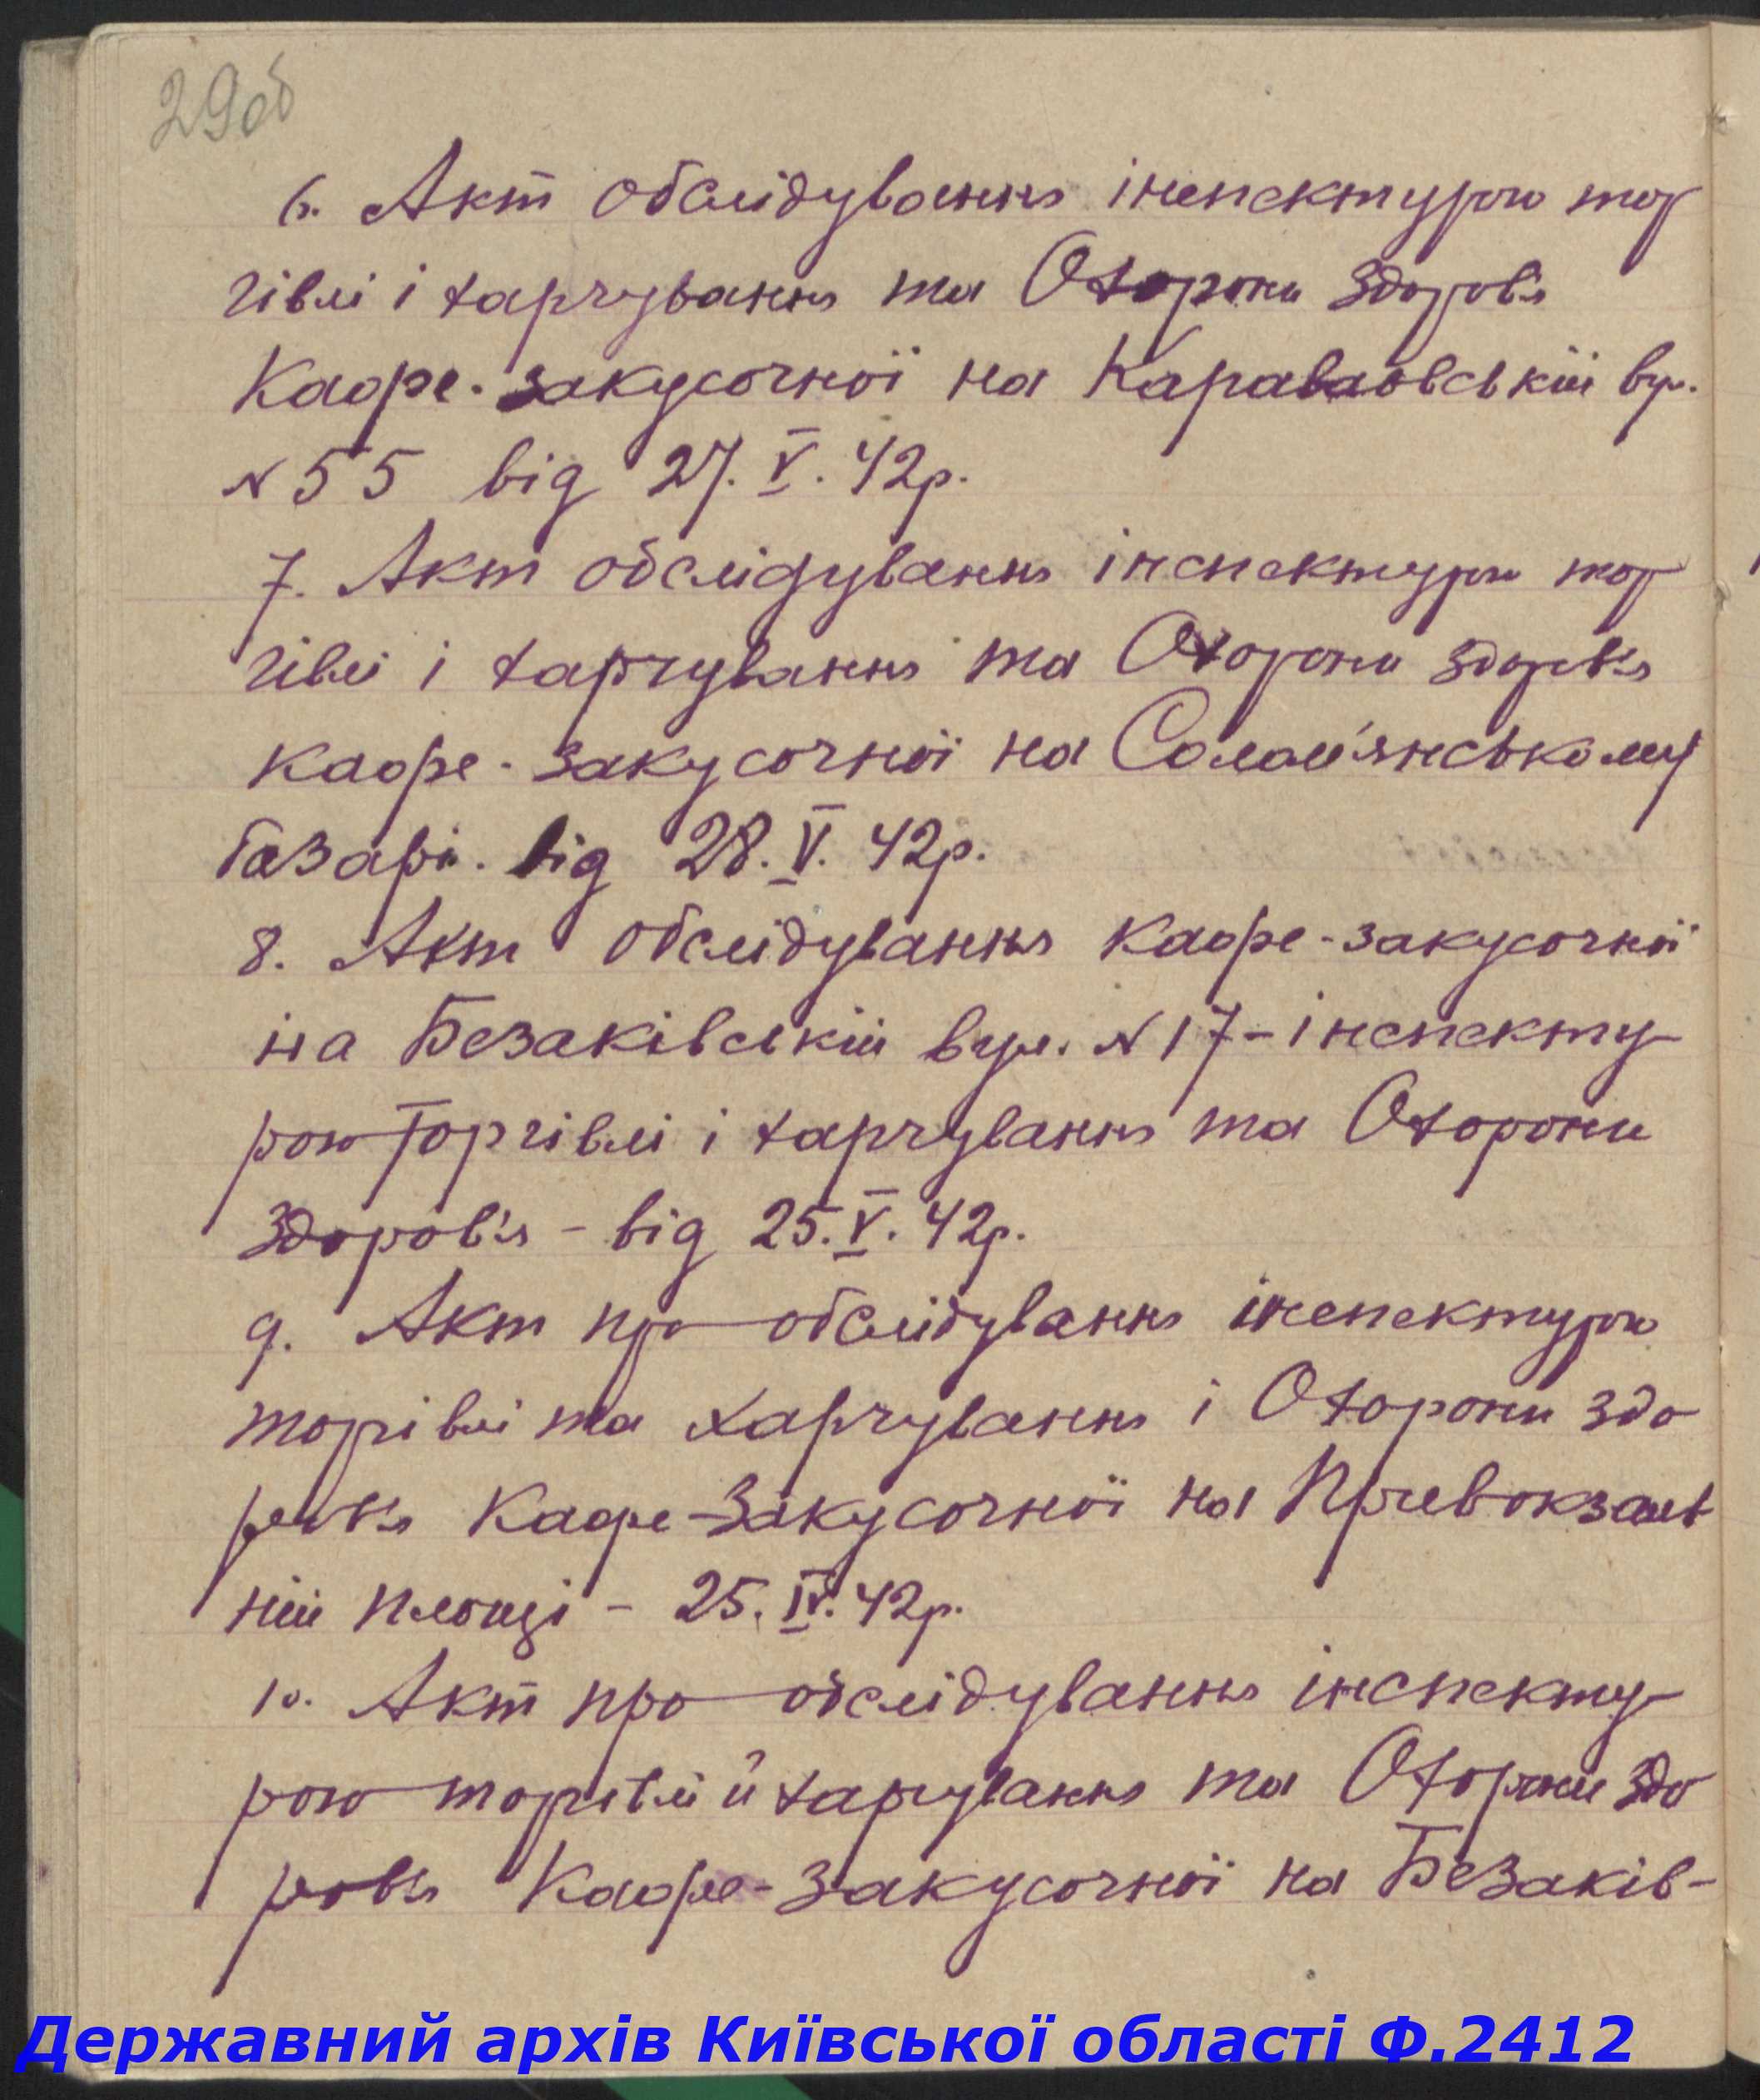 29об
6. Акт обслідування інспектурою тор
гівлі і харчування та Охорони Здоров'я
Кафе-закусочної на Караваєвській вул.
№ 55 від 27.V.42р.
7. Акт обслідування інспектурою тор
гівлі і харчування та Охорони здоров'я
кафе-закусочної на Солом'янському
базарі. від 28.V.42р.
8. Акт обслідування Кафе-закусочної
на Безаківській вул. № 17 - інспекту-
рою Торгівлі і харчування та Охорони
Здоров'я - від 25.V.42р.
9. Акт про обслідування інспектурою
торгівлі та харчування і Охорони здо
ров'я Кафе-Закусочної на Привокзаль
ній площі - 25.IV.42р.
10. Акт про обслідування інспекту-
рою торгівлі й харчування та Охорони Здо
ров'я Кафе-Закусочної на Безаків-
Державний архів Київської області Ф.2412